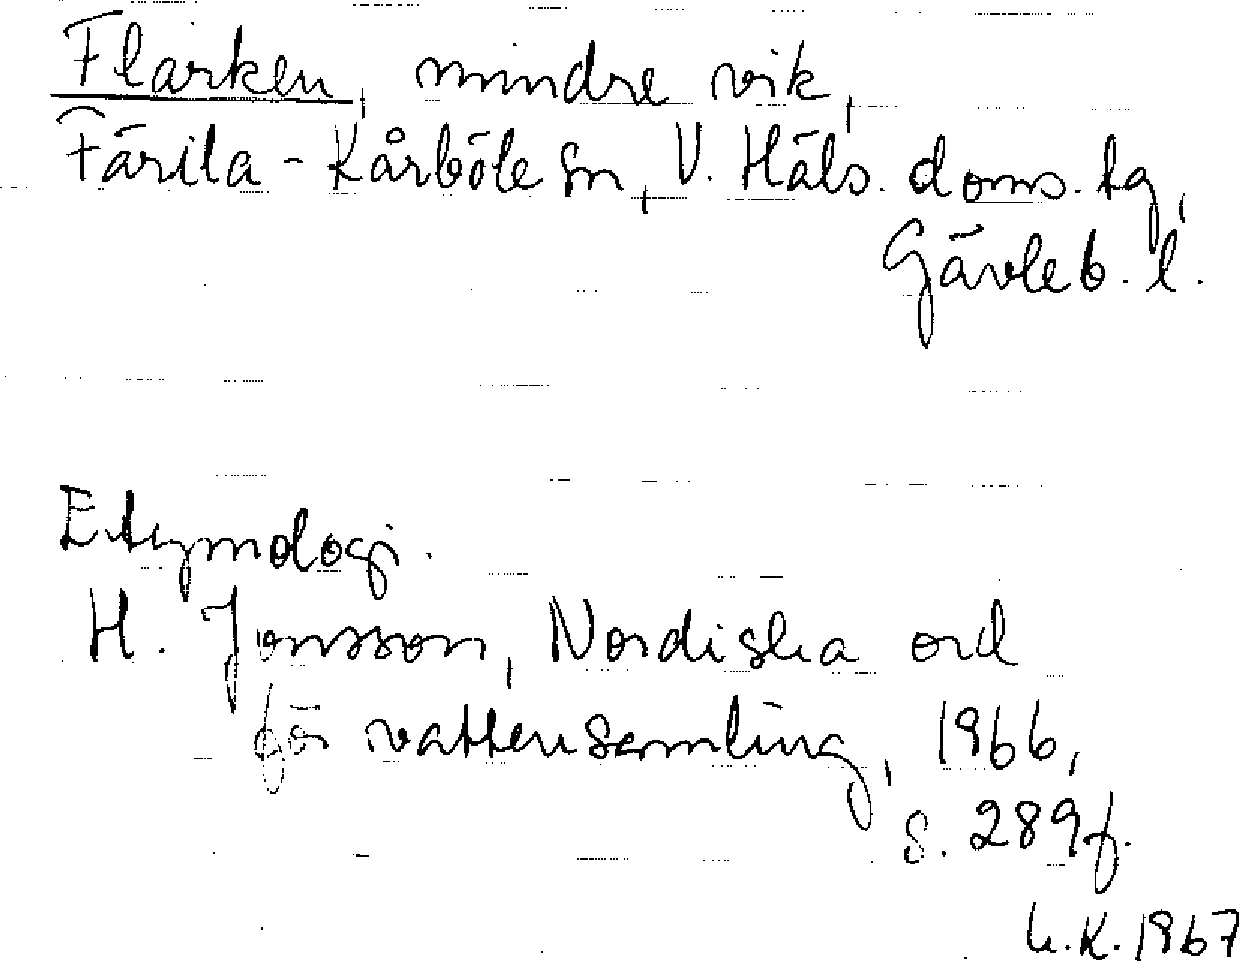 Flarken, mindre vik,
Färila-Kårböle sn, V. Häls. doms. tg,
Gävleb. l.
Etymologi.
H. Jonsson, Nordiska ord
för vattensamling, 1966,
s. 289f.
K. 1967